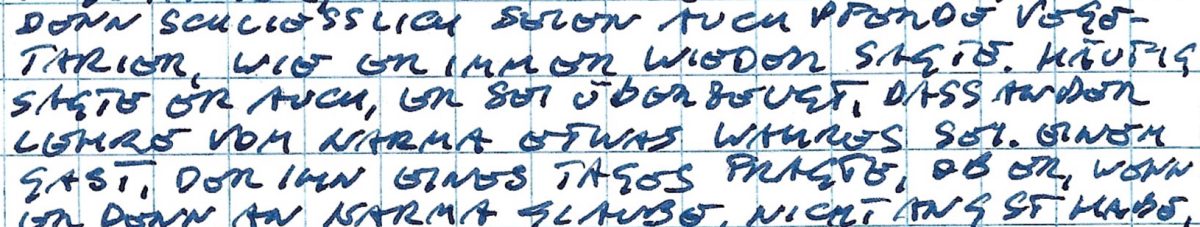 DENN SCHLIESSLICH SEIEN AUCH PFERDE VEGE-
TARIER, WIE ER IMMER WIEDER SAGTE. HÄUFIG
SAGTE ER AUCH, ER SEI ÜBERZEUGT, DASS AN DER
LEHRE VOM KARMA ETWAS WAHRES SEI. EINEM
GAST, DER IHN EINES TAGES FRAGTE, OB ER, WENN
ER DENN AN KARMA GLAUBE, NICHT ANGST HABE,